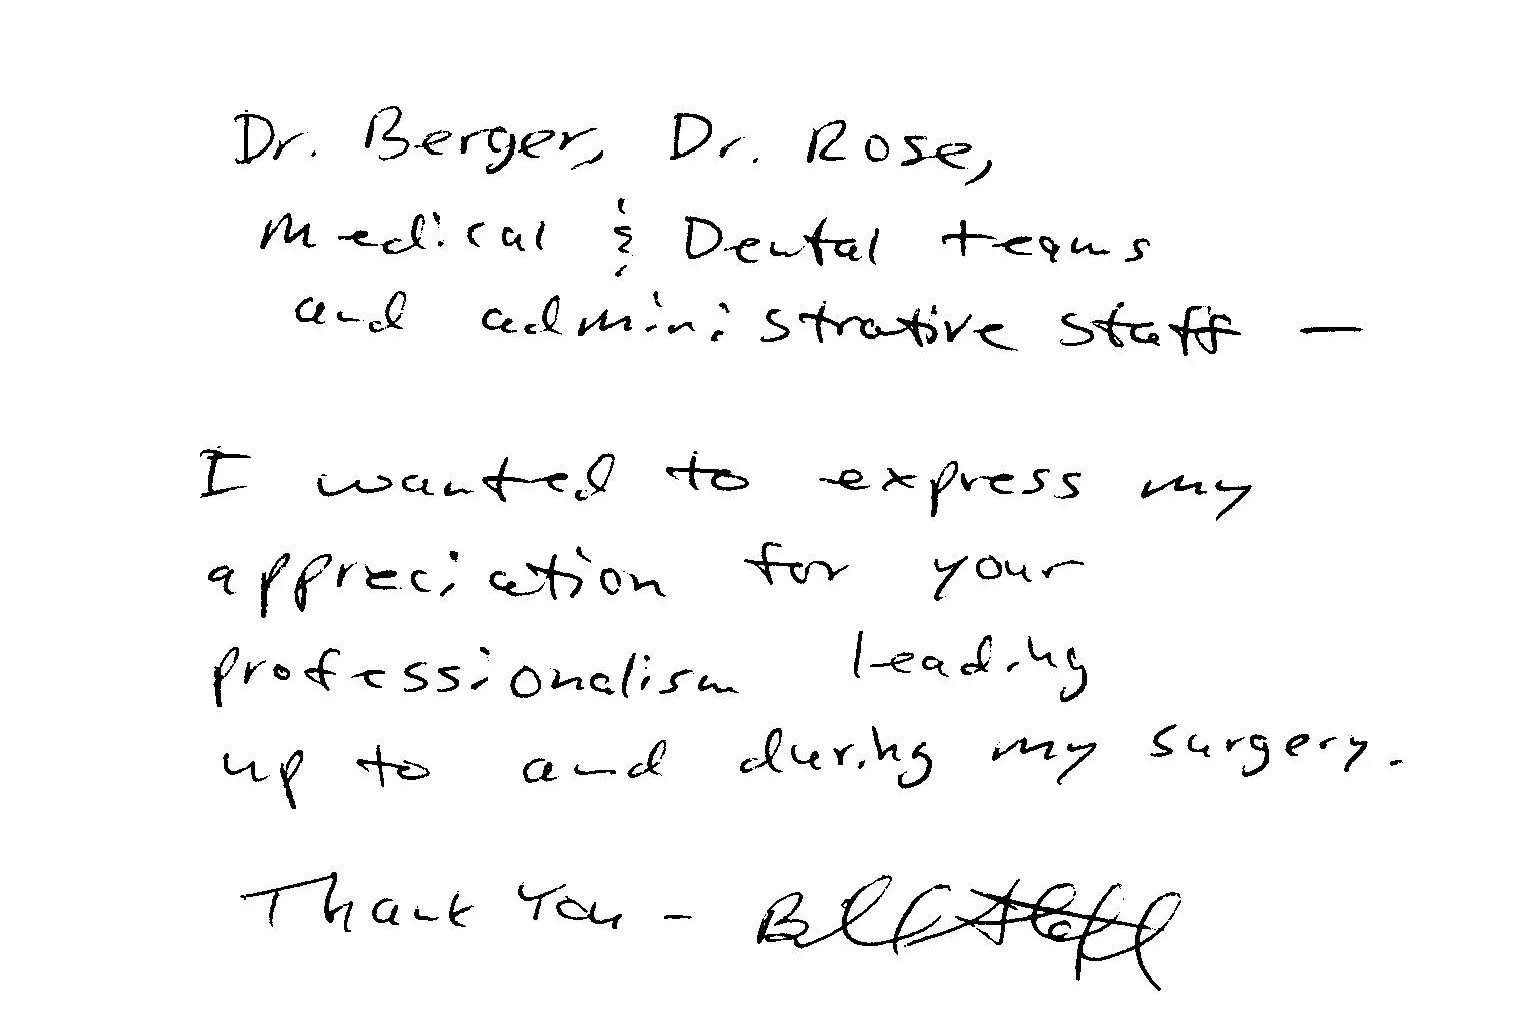 Dr. Berger, Dr. Rose,
Medical & Dental teams
and administrative staff —
I wanted to express my
appreciation for your
professionalism leading
up to and during my surgery.
Thank You -